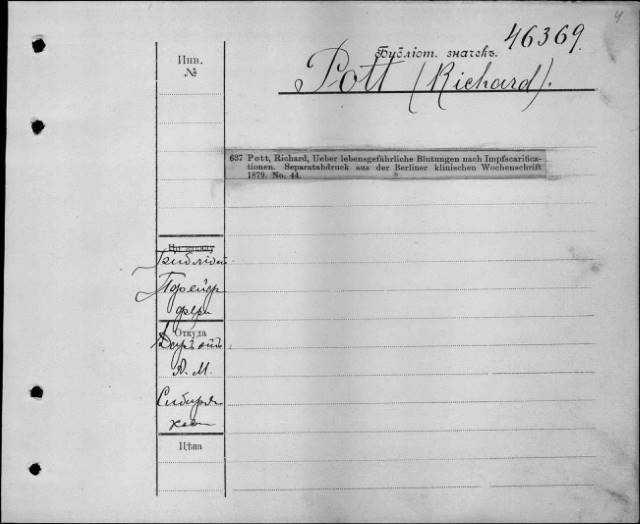 4
46369.
Инв.
№
Бубліот. значекъ.
Pott (Richard).
637 Pott, Richard, Ueber lebensgefährliche Blutungen nach Impfscarifica-
tionen. Separatabdruck aus der Berliner klinischen Wochenschrift
1879. No. 44.
Библіот.
Пфейф
фера
Откуда
Даръ отъ
А. М.
Сибиря
кова
Цѣна